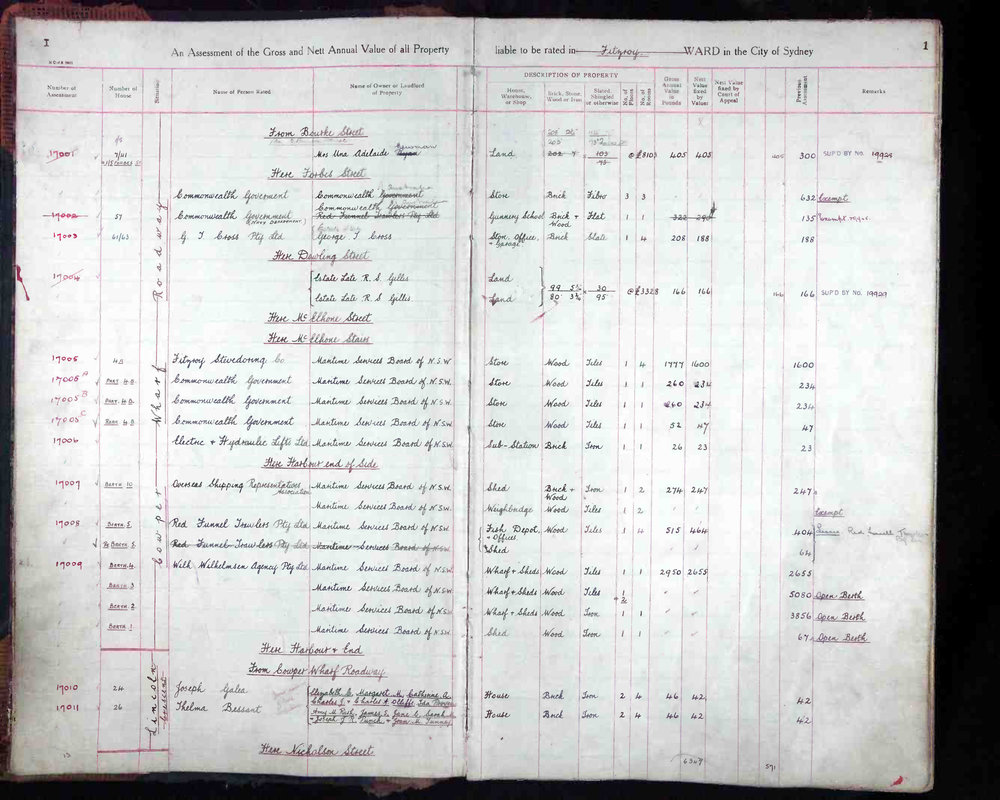 1
1
An Assessment of the Gross and Nett Annual Value of all Property liable to be rated in Fitzroy. WARD in the City of Sydney
Number of Assessment
Number of House
Situation
Name of Person Rated
Name of Owner or Landlord of Property
DESCRIPTION OF PROPERTY
House, Warehouse, or Shop
Brick, Stone, Wood or Iron
Slated, Shingled or otherwise
No. of Floors
No. of Rooms
Gross Annual Value in Pounds
Nett Value fixed by Valuer
Nett Value fixed by Court of Appeal
Previous Assessment
Remarks
Cowper Wharf Roadway
From Bourke Street
17001 7/41 Mrs Una Adelaide Ryan Land 203 105 @ £ 8103 405 405 405 300 SUP'D BY NO. 19929
Here Forbes Street
Commonwealth Government Commonwealth Government Store Brick Fibro 3 3 632 Exempt
Commonwealth Government
17002 57 Commonwealth Government Red Funnel Trawlers Pty Ltd Gunnery School Brick + Wood Flat 1 1 322 290 135 Exempt
(Navy Department)
17003 61/63 G. J Cross Pty Ltd George J Cross Store, Office, + Garage Brick Slate 1 4 208 188 188
Here Dowling Street
17004 Estate Late R. S. Gilles Land
Estate Late R. S. Gilles Land 99 80 30 95 @ £ 3328 166 166 166 166 SUP'D BY NO. 19929
Here McElhone Street
Here McElhone Stairs
17005 4B Fitzroy Stevedoring Co Maritime Services Board of N.S.W Store Wood Tiles 1 4 1777 1600 1600
17005A Part 4B. Commonwealth Government Maritime Services Board of N.S.W. Store Wood Tiles 1 1 260 234 234
17005B Part 4B. Commonwealth Government Maritime Services Board of N.S.W. Store Wood Tiles 1 1 260 234 234
17005C Part 4B. Commonwealth Government Maritime Services Board of N.S.W. Store Wood Tiles 1 1 52 47 47
17006 Electric + Hydraulic Lifts Ltd Maritime Services Board of N.S.W. Sub-Station Brick Iron 1 1 26 23 23
Here Harbour end of Side
17007 Berth 10 Overseas Shipping Representatives Association Maritime Services Board of N.S.W. Shed Brick + Wood Iron 1 2 274 247 247
Maritime Services Board of N.S.W. Weighbridge Wood Iron 1 2 Exempt
17008 Berth 5 Red Funnel Trawlers Pty Ltd Maritime Services Board of N.S.W. Fish Depot, + Offices Wood Tiles 1 4 515 464 404
Berth 5 Red Funnel Trawlers Pty Ltd Maritime Services Board of N.S.W. Shed 64
17009 Berth 4 Wilh. Wilhelmsen Agency Pty Ltd Maritime Services Board of N.S.W. Wharf + Sheds Wood Tiles 1 1 2950 2655 2655
Berth 3 Maritime Services Board of N.S.W. Wharf + Sheds Wood Tiles 5080 Open Berth
Berth 2 Maritime Services Board of N.S.W. Wharf + Sheds Wood Iron 1 1 3856 Open Berth
Berth 1 Maritime Services Board of N.S.W. Shed Wood Iron 1 1 67 Open Berth
Here Harbour + End
From Cowper Wharf Roadway
Lincoln Crescent
17010 24 Joseph Galea Elizabeth C. Margaret M. Catherine A. House Brick Iron 2 4 46 42 42
17011 26 Thelma Bessant House Brick Iron 2 4 46 42 42
Here Nicholson Street
6347
571